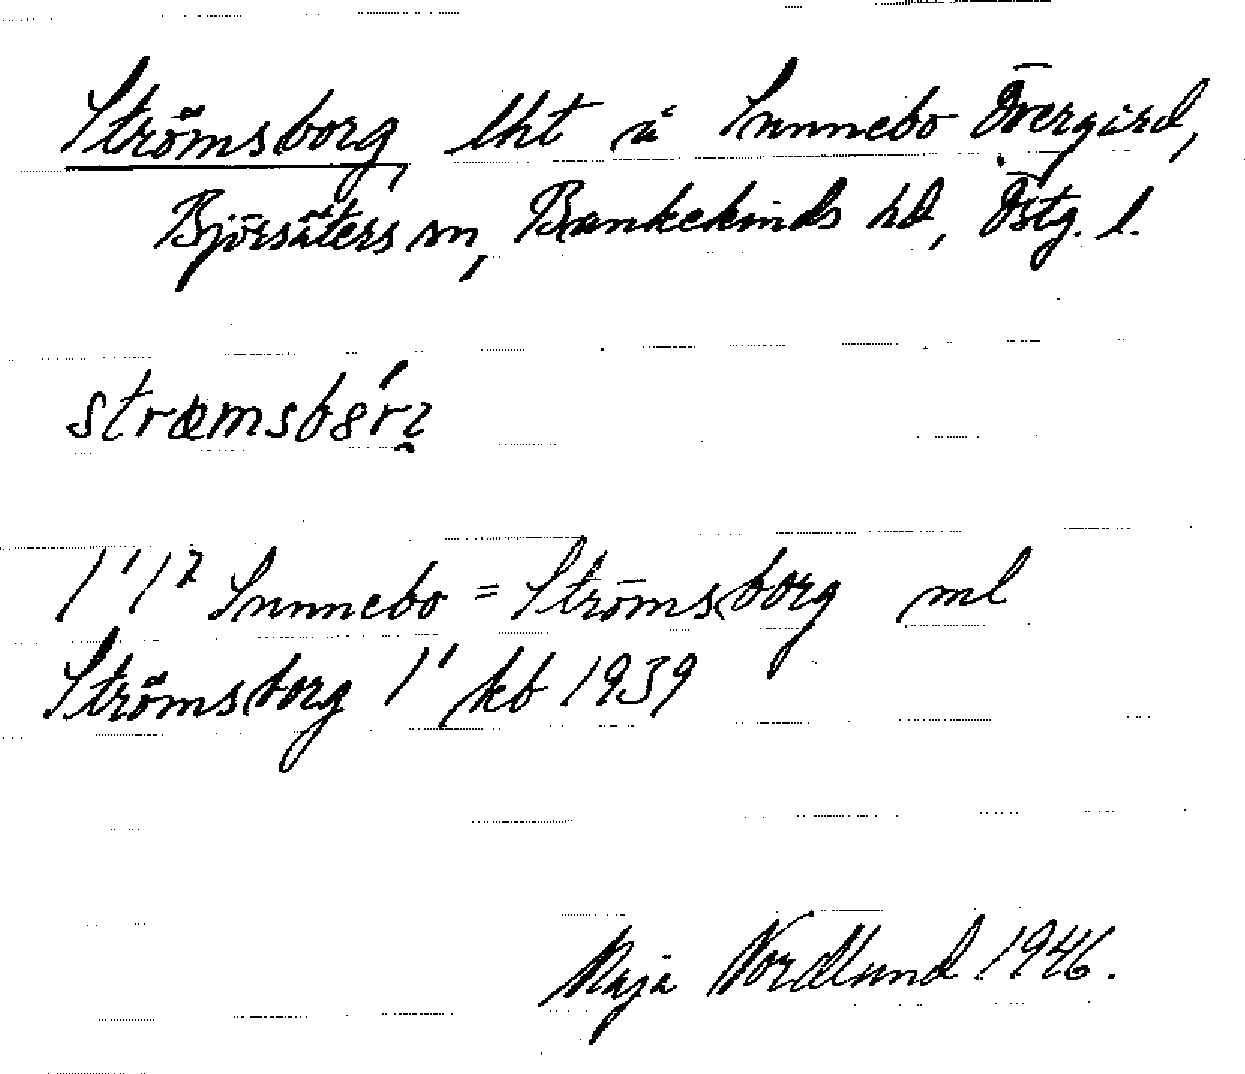 Strömsborg, lht å Sunnebo Övergård,
Björsäters sn, Bankekinds hd, Östg. l.
stræmsbǫ́rȷ
1' 1² Sunnebo = Strömsborg ml
Strömsborg 1' kb 1939
Maja Nordlund 1946.